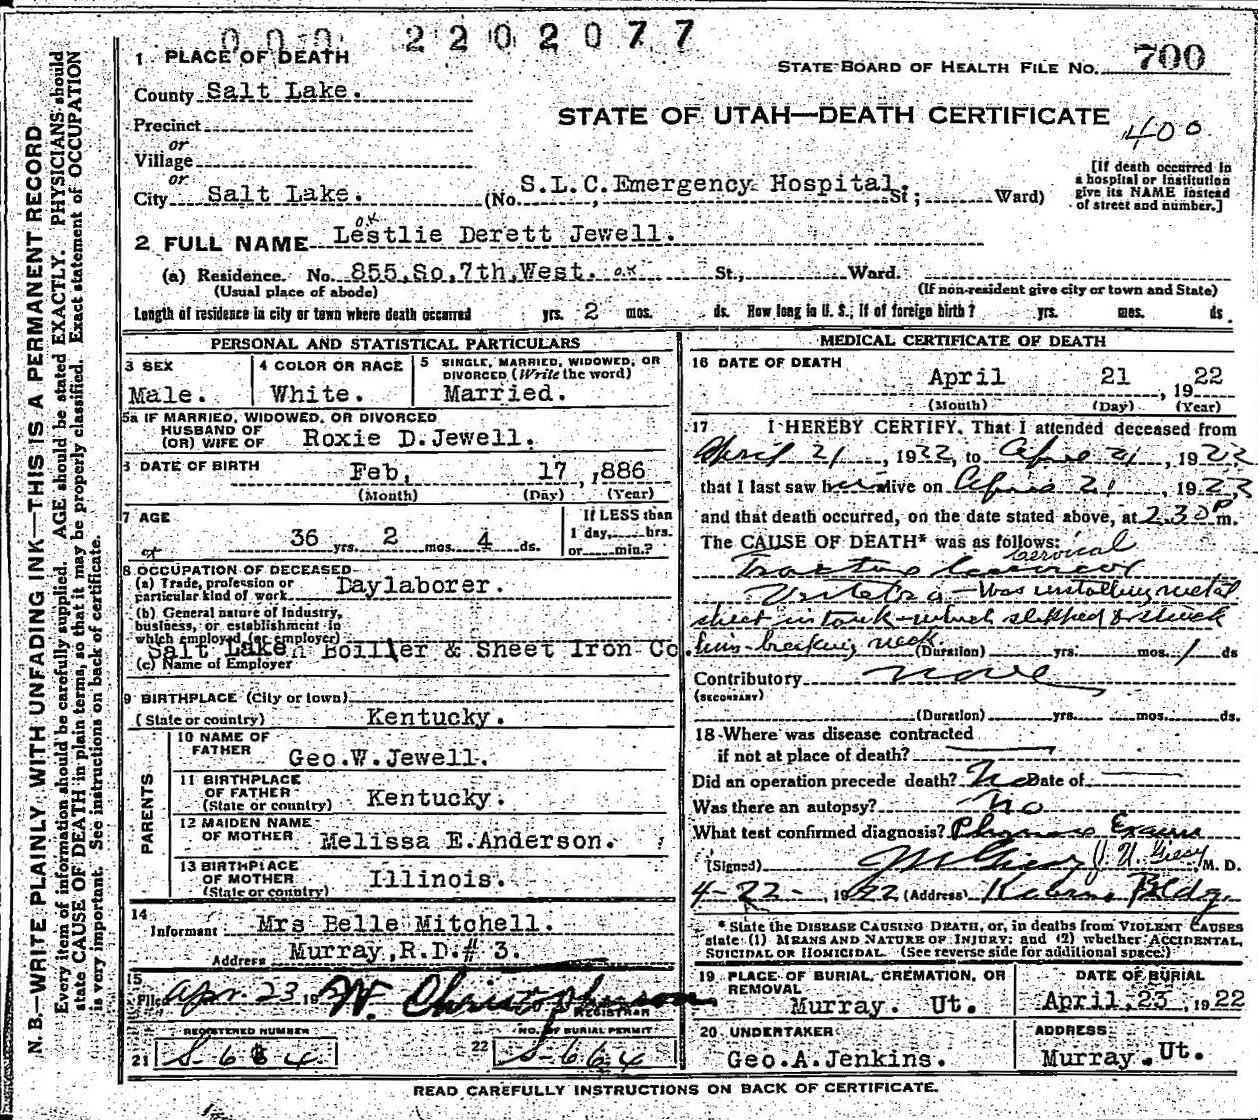 000 2202077
1 PLACE OF DEATH
STATE BOARD OF HEALTH FILE NO. 700
County Salt Lake.
STATE OF UTAH—DEATH CERTIFICATE
400
Precinct
or
Village
or
City Salt Lake. (No. S.L.C. Emergency Hospital. St; Ward)
[If death occurred in
a hospital or institution
give its NAME instead
of street and number.]
ok
2 FULL NAME Lestlie Derett Jewell.
(a) Residence. No. 855, So, 7th, West. ok St., Ward.
(Usual place of abode) (If non-resident give city or town and State)
Length of residence in city or town where death occurred yrs. 2 mos. ds. How long in U. S.; if of foreign birth? yrs. mos. ds.
PERSONAL AND STATISTICAL PARTICULARS
3 SEX
Male.
4 COLOR OR RACE
White.
5 SINGLE, MARRIED, WIDOWED, OR
DIVORCED (Write the word)
Married.
5a IF MARRIED, WIDOWED, OR DIVORCED
HUSBAND OF
(OR) WIFE OF Roxie D. Jewell.
6 DATE OF BIRTH Feb, 17, 1886
(Month) (Day) (Year)
7 AGE
36 yrs. 2 mos. 4 ds.
If LESS than
1 day, hrs.
or min.?
8 OCCUPATION OF DECEASED
(a) Trade, profession or
particular kind of work Daylaborer.
(b) General nature of Industry,
business, or establishment in
which employed (or employer)
Salt Lake Boiler & Sheet Iron Co.
(c) Name of Employer
9 BIRTHPLACE (City or town)
(State or country) Kentucky.
PARENTS
10 NAME OF
FATHER Geo. W. Jewell.
11 BIRTHPLACE
OF FATHER
(State or country) Kentucky.
12 MAIDEN NAME
OF MOTHER Melissa E. Anderson.
13 BIRTHPLACE
OF MOTHER
(State or country) Illinois.
14
Informant Mrs Belle Mitchell.
Address Murray, R.D.# 3.
15
Filed Apr. 23 19 W. Christopherson
REGISTRAR
REGISTERED NUMBER
21 S-664
NO. OF BURIAL PERMIT
22 S-664
MEDICAL CERTIFICATE OF DEATH
16 DATE OF DEATH
April 21, 1922
(Month) (Day) (Year)
17 I HEREBY CERTIFY, That I attended deceased from
April 21, 1922, to April 21, 1922
that I last saw him alive on April 21, 1922
and that death occurred, on the date stated above, at 2:30 P m.
The CAUSE OF DEATH* was as follows:
Cervical
Vertebra - Was installing metal
sheet in tank which slipped & struck
him - breaking neck (Duration) yrs. mos. 1 ds
Contributory None
(SECONDARY)
(Duration) yrs. mos. ds.
18 Where was disease contracted
if not at place of death?
Did an operation precede death? No Date of
Was there an autopsy? No
What test confirmed diagnosis? Physical Exam
(Signed) J. U. Giesy M. D.
4-22-, 1922 (Address) Kearns Bldg.
* State the DISEASE CAUSING DEATH, or, in deaths from VIOLENT CAUSES
state (1) MEANS AND NATURE OF INJURY; and (2) whether ACCIDENTAL,
SUICIDAL OR HOMICIDAL. (See reverse side for additional space.)
19 PLACE OF BURIAL, CREMATION, OR
REMOVAL
Murray. Ut.
DATE OF BURIAL
April, 23, 1922
20 UNDERTAKER
Geo. A. Jenkins.
ADDRESS
Murray. Ut.
READ CAREFULLY INSTRUCTIONS ON BACK OF CERTIFICATE.
N. B.—WRITE PLAINLY WITH UNFADING INK—THIS IS A PERMANENT RECORD
Every item of information should be carefully supplied. AGE should be stated EXACTLY. PHYSICIANS should
state CAUSE OF DEATH in plain terms, so that it may be properly classified. Exact statement of OCCUPATION
is very important. See instructions on back of certificate.